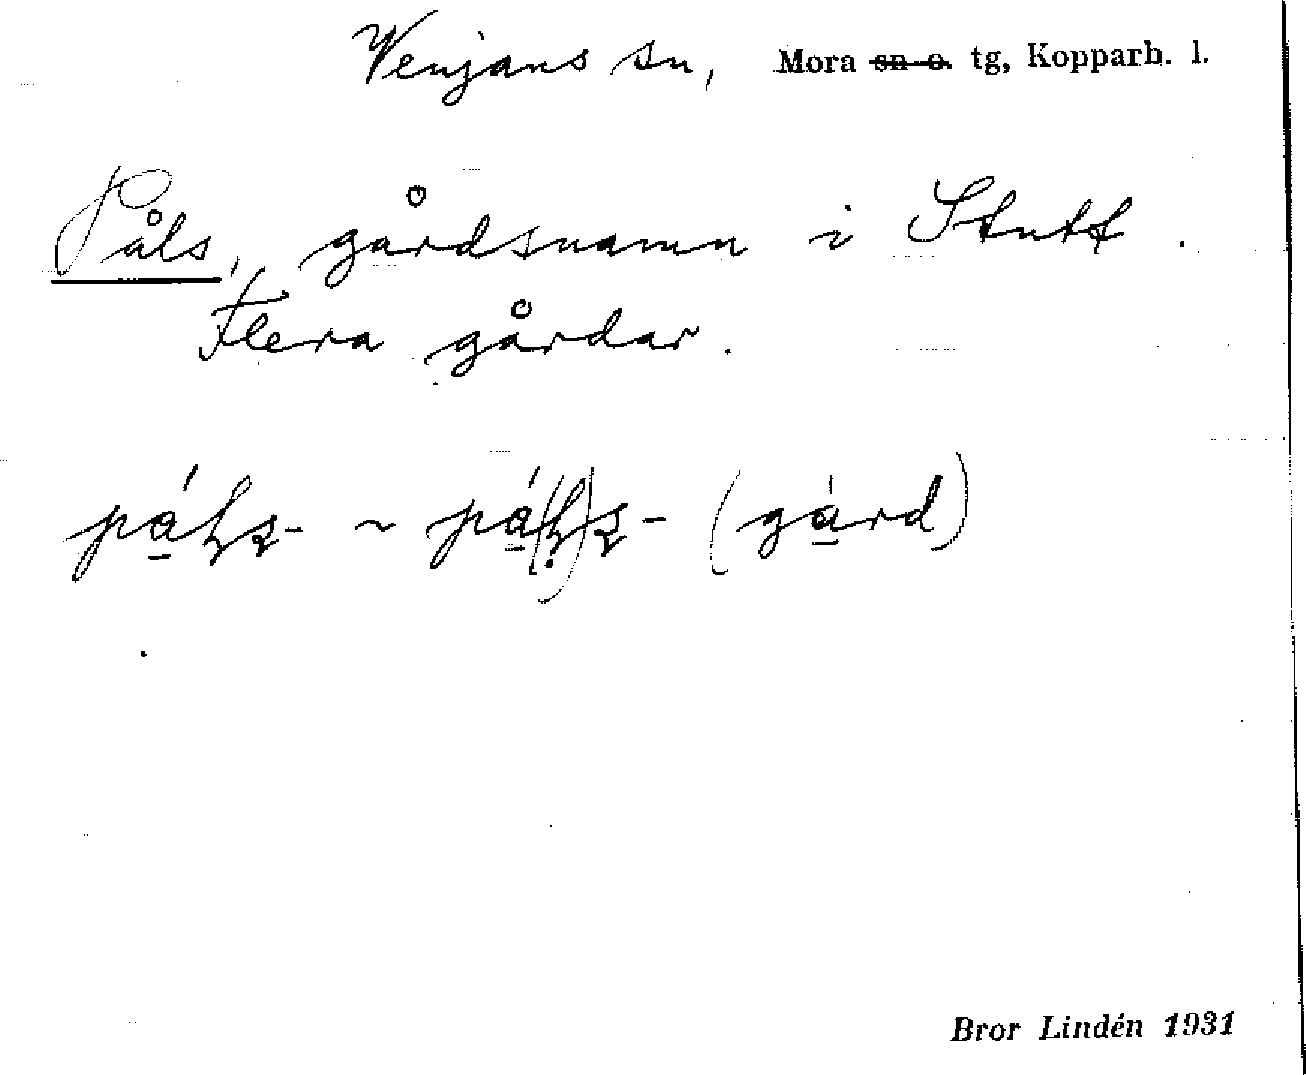 Venjans sn, Mora sn o. tg, Kopparb. l.
Påls, gårdsnamn i Stutt.
Flera gårdar.
(gård)
Bror Lindén 1931